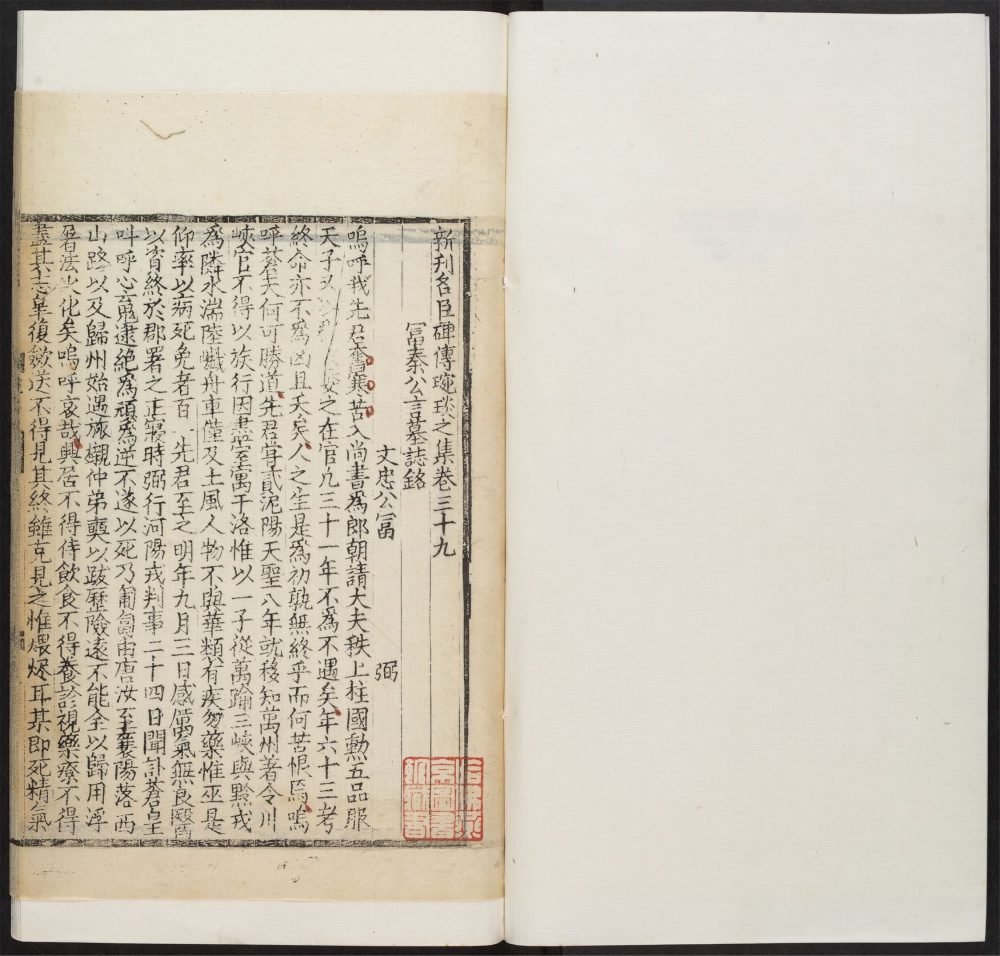 新刋名臣碑傳琬琰之集卷三十九
冨秦公言墓誌銘
文忠公冨 弼
嗚呼我先君奮寒苦入尚書爲郎朝請大夫秩上柱國勲五品服
天子以 之在官凢三十一年不爲不遇矣年六十三考
終命亦不爲凶且夭矣人之生是爲初孰無終乎而何苦恨焉嗚
呼蒼天何可勝道先君甞貳泥陽天聖八年就移知萬州著令川
峽官不得以族行因盡室寓于洛惟以一子從萬踰三峽與黔戎
爲隣水湍陸巇舟車僅及土風人物不與華類有疾勿藥惟巫是
仰率以病死免者百一先君至之明年九月三日感癘氣無良毉
以資終於郡署之正寢時弼行河陽戎判事二十四日聞訃蒼皇
呌呼心 逮絶爲頑爲逆不遂以死乃匍匐由唐汝至襄陽落西
山路以及歸州始遇旅櫬仲弟奭以跋歷險遠不能全以歸用浮
屠法火化矣嗚呼哀哉興居不得侍飲食不得養診視藥療不得
盡其志臯復斂送不得見其終雖克見之惟煨燼耳某即死精氣